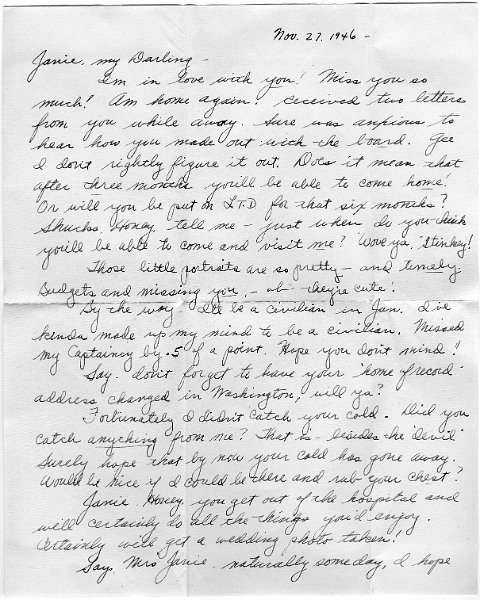 Nov. 27, 1946 -
Janie, my Darling -
I'm in love with you! Miss you so
much! Am home again! received two letters
from you while away. Sure was anxious to
hear how you made out with the board. Gee
I don't rightly figure it out. Does it mean that
after three months you'll be able to come home?
Or will you be put on L.T.D for that six months?
Shucks, Honey tell me - just when do you think
you'll be able to come and visit me? Wove ya, Stinkey!
Those little portraits are so pretty - and timely.
Budgets and missing you, - oh - they're cute!
By the way - I'll be a civilian in Jan. I've
kinda made up my mind to be a civilian. Missed
my Captaincy by .5 of a point. Hope you don't mind!
Say, don't forget to have your "home of record"
address changed in Washington, will ya?
Fortunately I didn't catch your cold. Did you
catch anything from me? That is - besides the "devil"
Surely hope that by now your cold has gone away.
Would be nice if I could be there and rub your chest?
Janie, Honey, you get out of the hospital and
we'll certainly do all the things you'd enjoy.
Certainly will get a wedding photo taken!
Say, Mrs Janie, naturally someday, I hope